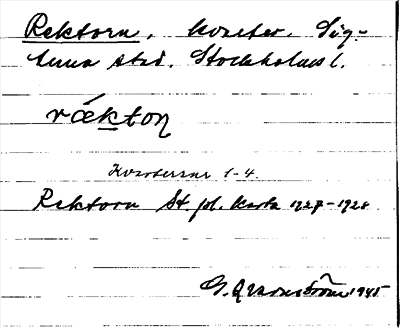 Rektorn, kvarter. Sig-
tuna stad. Stockholms l.
rǽkton
Kvarteren 1-4.
Rektorn St. pl. karta 1927-1928
G. Arvnström 1945